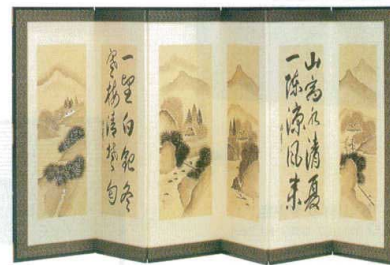 山高水清夏
一陣涼風来
一望白皚冬
寒梅清楚匂